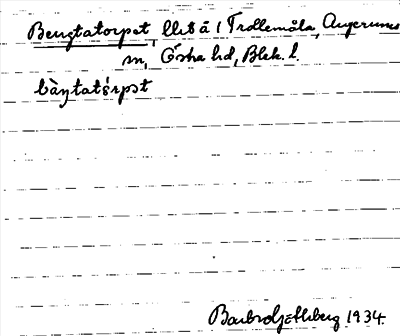 Bengtatorpet, llit å 1 Trollemåla, Augerums
sn, Östra hd, Blek. l.
bàŋtatórpət
Barbro Götlberg 1934.